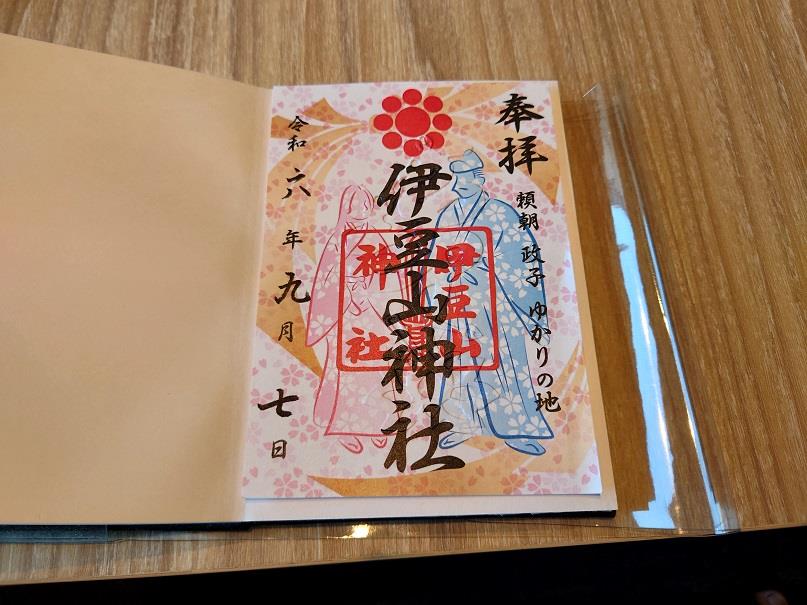 奉拝
頼朝 政子 ゆかりの地
伊豆山神社
令和六年九月七日